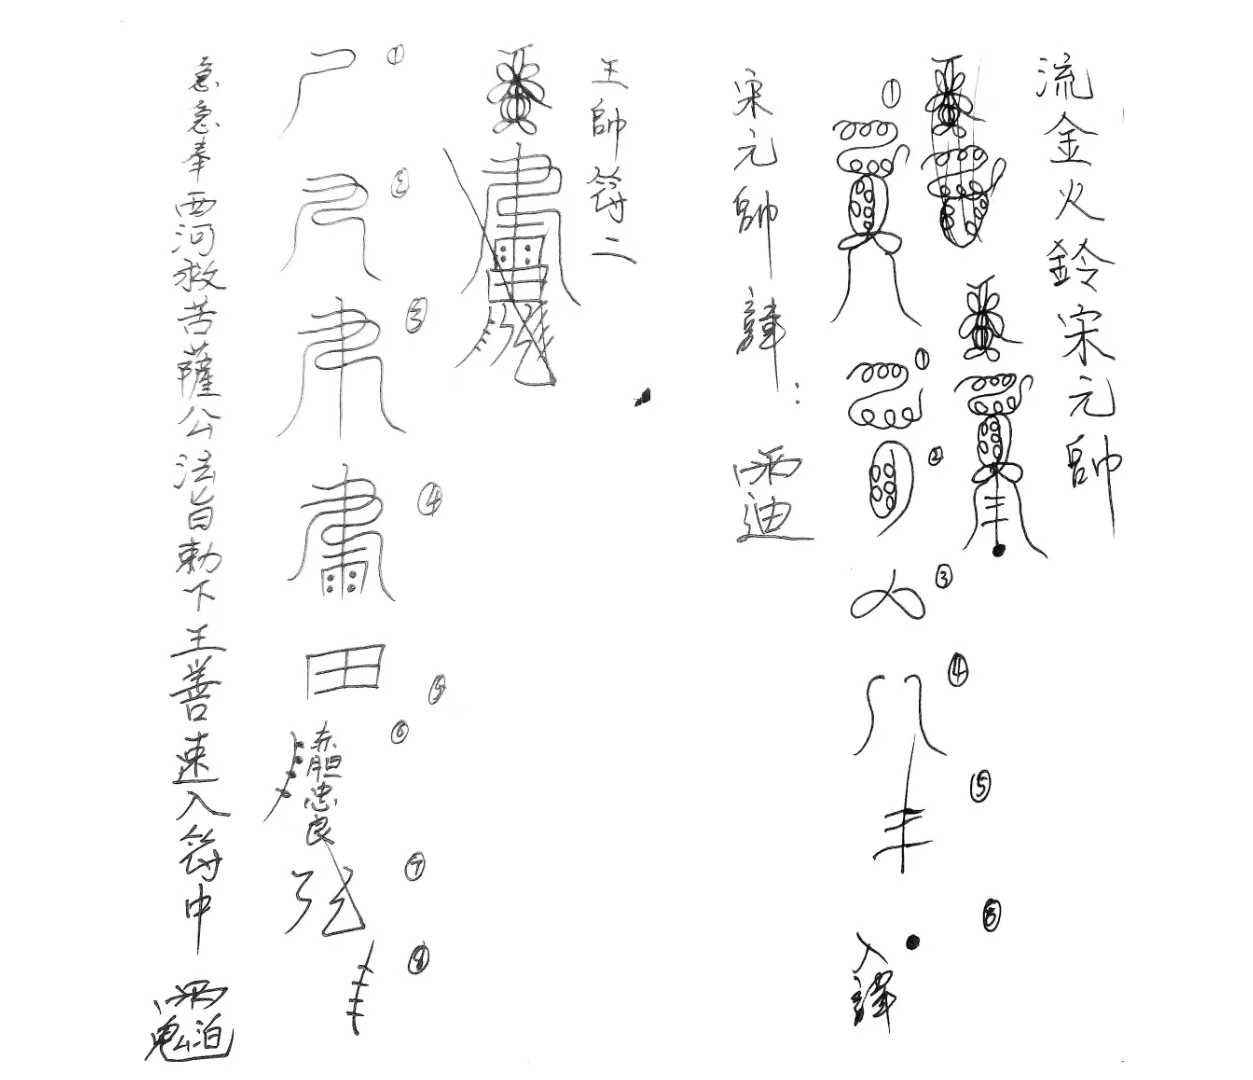 流金火鈴宋元帥
①
①
②
③
④
⑤
⑥
入諱
宋元帥諱：
王帥符二
①
②
③
④
田
⑤
⑥
赤胆忠良
⑦
⑧
急急奉西河救苦薩公法旨勅下王善速入符中